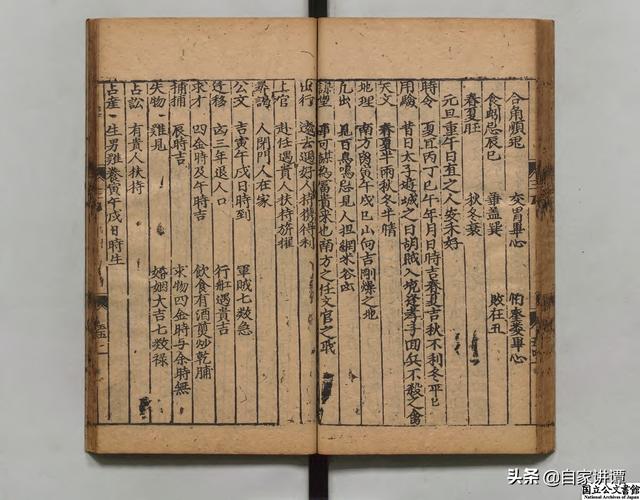 合角
交冐畢心
食
忌辰巳
垂
巽
敗在丑
春夏旺
秋冬衰
元旦重午日直之人安未好
時令 夏宜丙丁巳午年月日時吉春夏吉秋不利冬平巳
用驗 昔日太子遊城之日胡賊入境逢孝子回兵不殺之
天文 春夏半雨秋冬半晴
地理 南方 寅午戌巳山向吉剛燥之地
九出 見百鳥鳴忌見人担網米谷凶
事可謀為富貴來也南方之任文官之職
出行 遠去遇好人持獲得利
上官 赴任遇貴人扶持旂擢
尋謁 人閉門人在家
軍賊七數急
公文 吉寅午戌日時到
行舡遇貴吉
迁移 凶三年退人口
飲食有酒煎炒乾脯
求才 四金時及午時吉
求物四金時与余時無
捕捕 辰時吉
婚姻大吉七數祿
失物 難見
占訟 有貴人扶持
占産 生男難養寅午戌日時生
头条 @自家讲谭
国立公文書館
National Archives of Japan